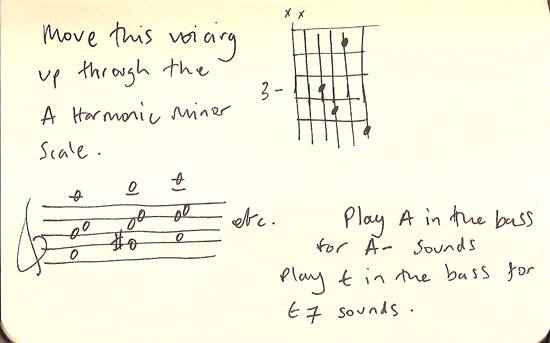 Move this voicing
up through the
A Harmonic Minor
Scale.
x x
3-
etc.
Play A in the bass
for A- sounds
Play E in the bass for
E7 sounds.